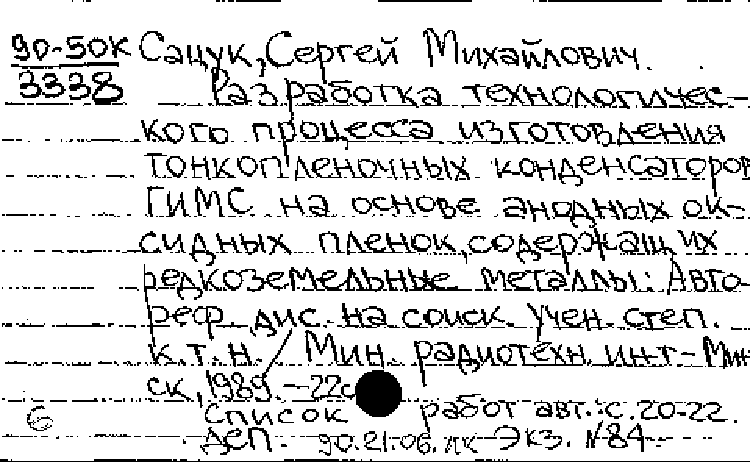 90-50К Сацук, Сергей Михайлович.
3338 Разработка технологичес-
кого процесса изготовления
тонкопленочных конденсаторов
ГИМС на основе анодных ок-
сидных пленок, содержащих
редкоземельные металлы: Авто-
реф. дис. на соиск. учен. степ.
к.т.н. / Мин. радиотехн. ин-т - Мин-
ск, 1989. - 22с
Список работ авт.: с. 20-22.
6 ДСП. 90.21.06. Экз. №84.